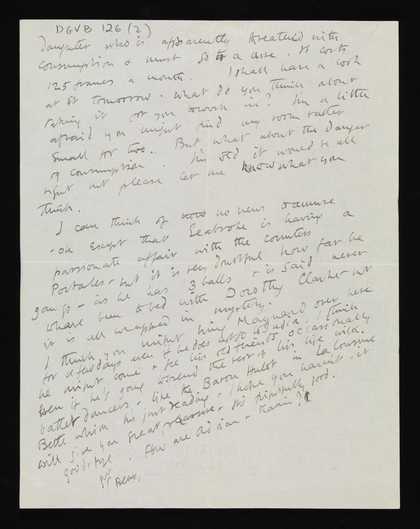 DGVB 126 (2)
daughter who is apparently treated with
consumption & must go to a cure. It costs
125 francs a month. I shall have a look
at it tomorrow. What do you think about
taking it for you to work in? I'm a little
afraid you might find my room rather
small for two. But what about the danger
of consumption. I'm sure it would be all
right but please let me know what you
think.
I can think of no news to amuse
you except that Seabrooke is having a
passionate affair with the Countess
Potbales - but it is very doubtful how far he
goes - as he has 3 balls & is said never
to have been to bed with Dorothy Clarke but
it is all wrapped in mystery.
I think you might bring Maynard over here
for a few days even if he does not
he might come & see his old friends occasionally
Even if he's going to spend the rest of his life with
ballet dancers - like the Baron Hulot in La Cousine
Bette which I'm just reading. I hope you haven't - it
will give you great pleasure - it's frightfully good.
good bye. How are